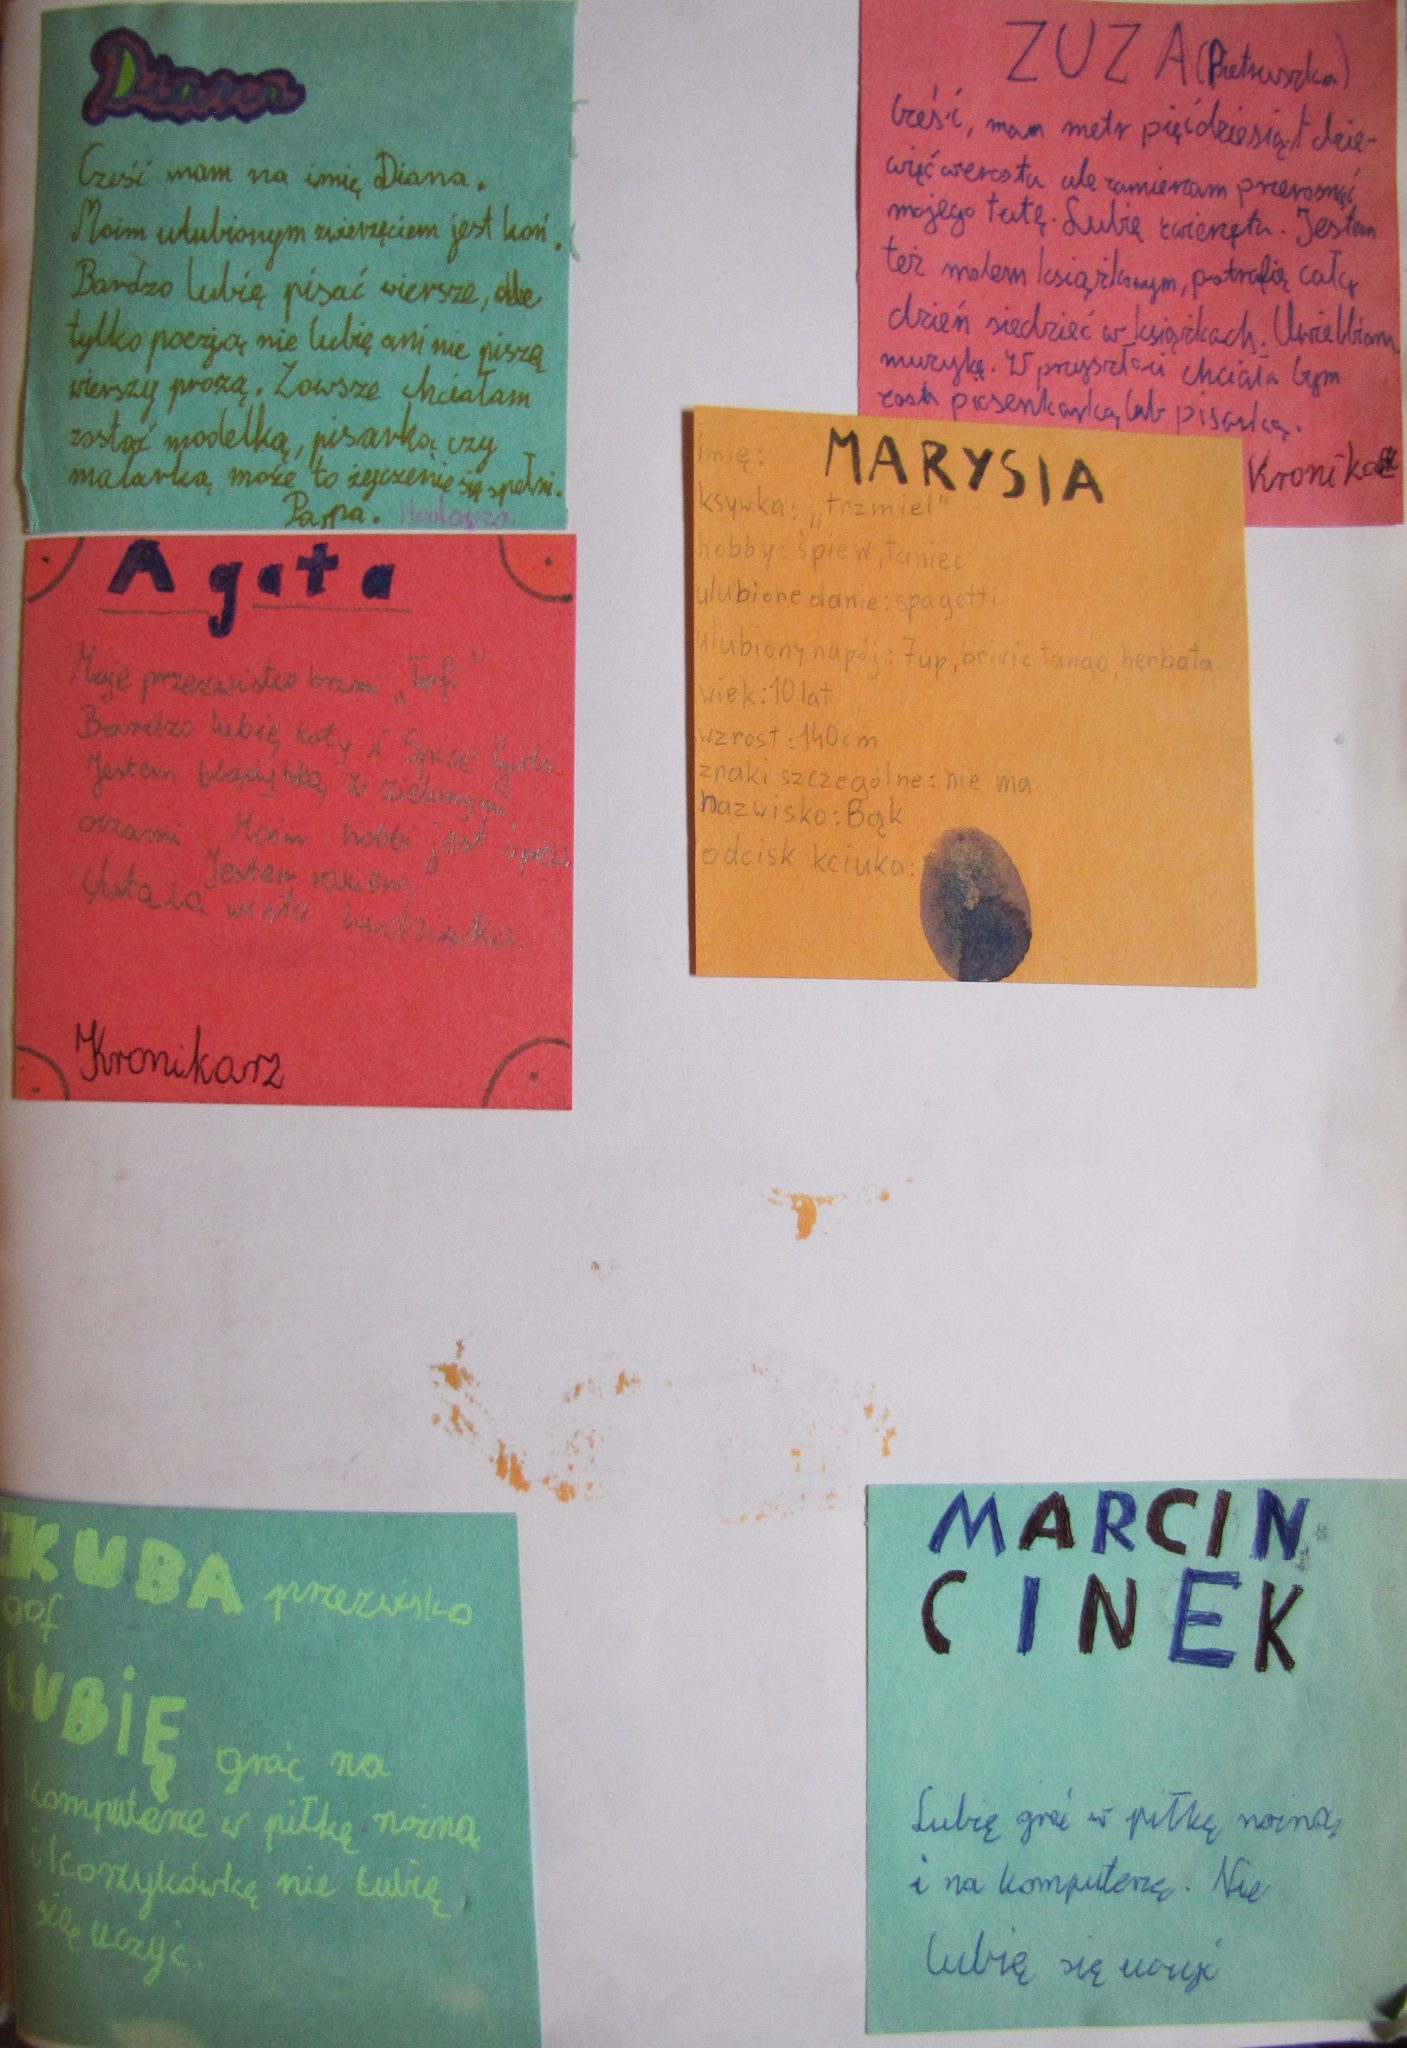 Diana
Cześć mam na imię Diana.
Moim ulubionym zwierzęciem jest koń.
Bardzo lubię pisać wiersze, ale
tylko poezją nie lubię ani nie piszą
wierszy prozą. Zawsze chciałam
zostać modelką, pisarką czy
malarką może to życzenie się spełni.
Papa.
ZUZA (Pietruszka)
Cześć, mam metr pięćdziesiąt dzie-
więć wzrostu ale zamierzam przerosnąć
mojego tatę. Lubię zwierzęta. Jestem
też molem książkowym, potrafię cały
dzień siedzieć w książkach. Uwielbiam
muzykę. W przyszłości chciała bym
zostać piosenkarką lub pisarką.
Kronika
imię: MARYSIA
ksywka: „trzmiel"
hobby: śpiew, taniec
ulubione danie: spagetti
ulubiony napój: 7up, brivic tango, herbata
wiek: 10 lat
wzrost: 140cm
znaki szczególne: nie ma
nazwisko: Bąk
odcisk kciuka:
Agata
Moje przezwisko brzmi „Tofi".
Bardzo lubię koty i Spice Girls.
Jestem blądynką z zielonymi
oczami. Moim hobbi jest śpew
Jestem rakiem
wista ludziska
Kronikarz
KUBA przezwisko
gof
LUBIĘ grać na
komputerze w piłkę nożną
i koszykówkę nie łubię
się uczyć.
MARCIN
CINEK
Lubię grać w piłkę nożną
i na komputerze. Nie
lubię się uczyć